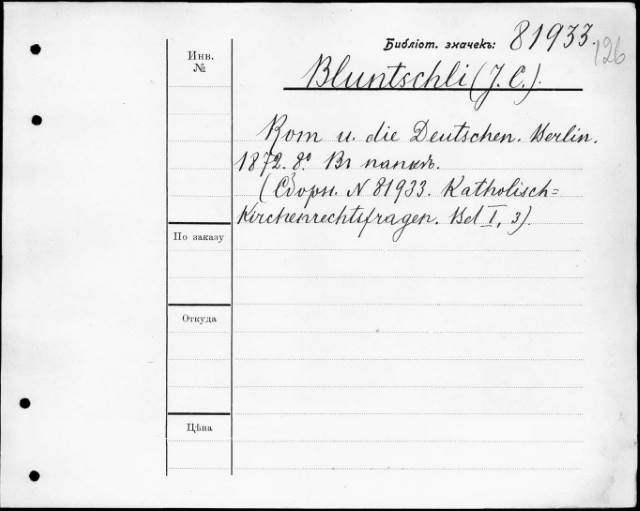 Библіот. значекъ: 81933.
126
Инв.
№
Bluntschli (J. C.).
Rom u. die Deutschen. Berlin.
1872. 8º. Въ папкѣ.
(Сборн. N 81933. Katholisch=
Kirchenrechtsfragen. Bd I, 3).
По заказу
Откуда
Цѣна